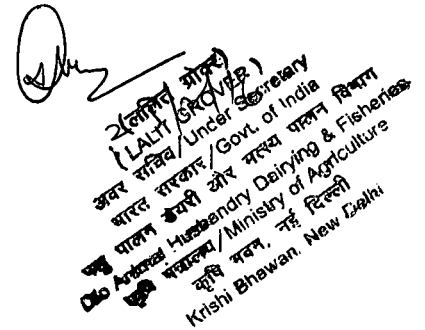 (ललित ग्रोवर)
(LALIT GROVER)
अवर सचिव/Under Secretary
भारत सरकार/Govt. of India
पशु पालन डेयरी और मत्स्य पालन विभाग
D/o Animal Husbandry Dairying & Fisheries
कृषि मंत्रालय/Ministry of Agriculture
कृषि भवन, नई दिल्ली
Krishi Bhawan, New Delhi